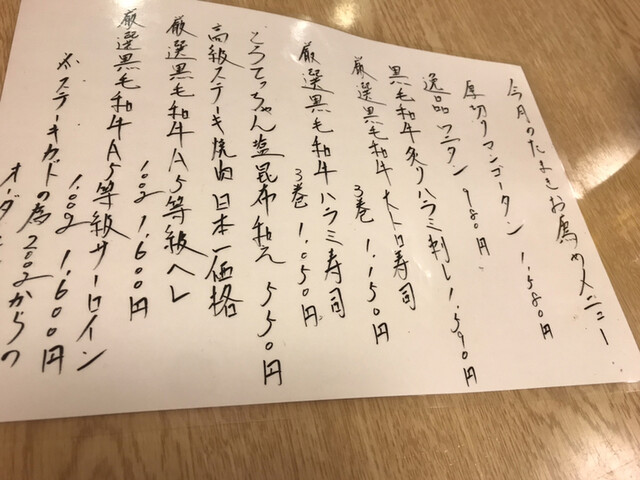 今月のたまきお薦めメニュー
厚切りマンゴータン 1,580円
逸品 ワニタン 980円
黒毛和牛炙りハラミ刺し 1,590円
厳選黒毛和牛 大トロ寿司
3巻 1,150円
厳選黒毛和牛 ハラミ寿司
3巻 1,050円
こうてっちゃん塩昆布和え 550円
高級ステーキ焼肉 日本一価格
厳選黒毛和牛A5等級ヘレ
100g 1,600円
厳選黒毛和牛A5等級サーロイン
100g 1,600円
※ステーキカットの為200gからの
オーダー